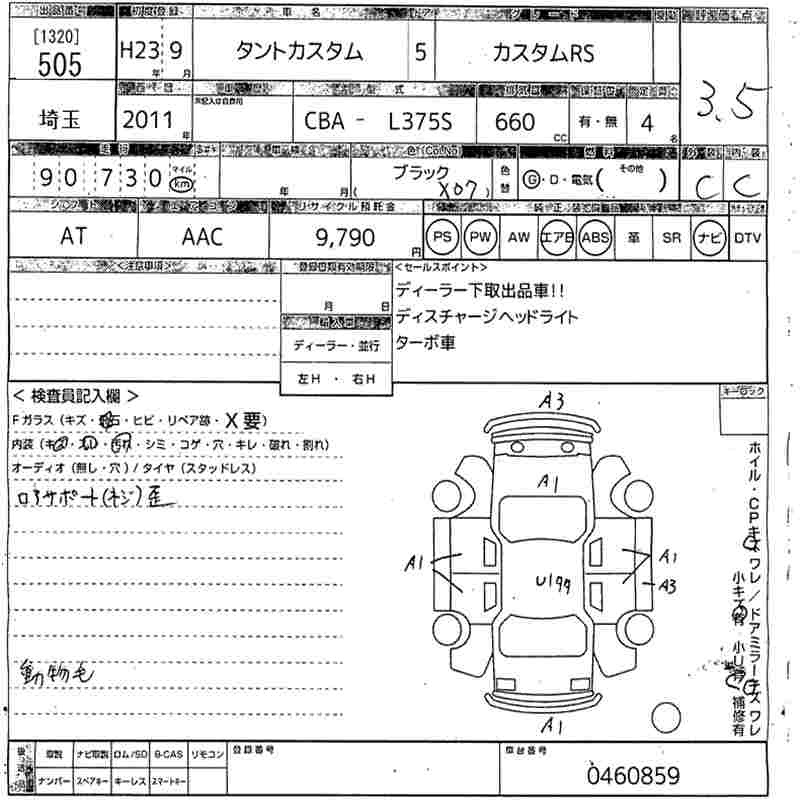 出品番号 初度登録 車名 ドア グレード 評価点
[1320]
505
H23 9
年 月
タントカスタム 5 カスタムRS
3.5
型式
埼玉 2011
年
CBA - L375S 660
CC
有・無 4
名
外装 内装
走行 車検 色(Col.No) 燃料
90,730
マイル
km
年 月
ブラック
( X07 )
色替
G・D・電気( その他 )
C C
シフト エアコン リサイクル預託金
AT AAC 9,790
円
PS PW AW エアB ABS 革 SR ナビ DTV
<注意事項>
登録書類有効期限
月 日
ディーラー・並行
左H ・ 右H
<セールスポイント>
ディーラー下取出品車!!
ディスチャージヘッドライト
ターボ車
< 検査員記入欄 >
Fガラス (キズ・飛石・ヒビ・リペア跡・X要)
内装 (キズ・スレ・汚れ・シミ・コゲ・穴・キレ・破れ・割れ)
オーディオ (無し・穴) / タイヤ (スタッドレス)
ロアサポート(ネジ)歪
動物毛
A3
A1
A1
U199
A1
A3
A1
キーロック
ホイル・CPキズ ワレ / ドアミラーキズ ワレ
小キズ有 小U有 補修有
取説 ナビ取説 ロム/SD B-CAS リモコン
ナンバー スペアキー キーレス スマートキー
登録番号
車台番号
0460859